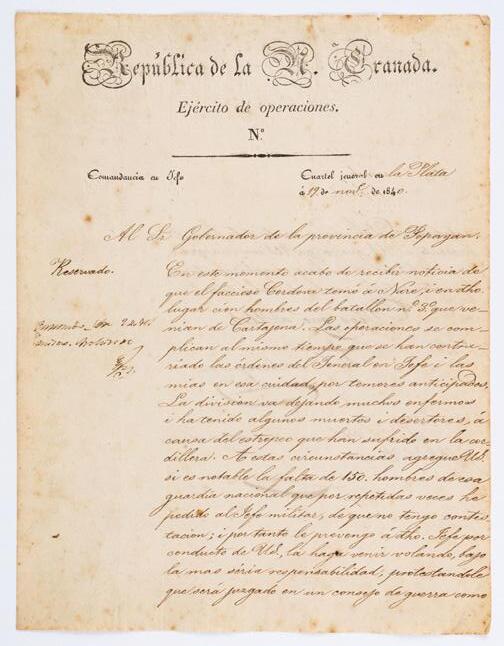 República de la N. Granada.
Ejército de operaciones.
Nº
Comandancia en Jefe
Cuartel jeneral en la Plata
á 19 de novᵉ. de 1840.
Al Sr Gobernador de la provincia de Popayan.
Reservado.
En este momento acabo de recibir noticia de
que el faccioso Cordova tomó á Nare, i en dho.
lugar cien hombres del batallon nº 3º que ve-
nian de Cartajena. Las operaciones se com-
plican al mismo tiempe que se han contra-
riado las órdenes del Jeneral en Jefe i las
mias en esa ciudad, por temores anticipados.
La division va dejando muchos enfermos
i ha tenido algunos muertos i desertores, á
causa del estropeo que han sufrido en la cor-
dillera. A estas circunstancias agregue Ud.
si es notable la falta de 150. hombres de esa
guardia nacional que por repetidas veces he
pedido al Jefe militar, de que no tengo contes-
tacion; i por tanto le prevengo á dho. Jefe por
conducto de Ud, la haga venir volando, bajo
la mas séria responsabilidad, protestandole
que será juzgado en un consejo de guerra como